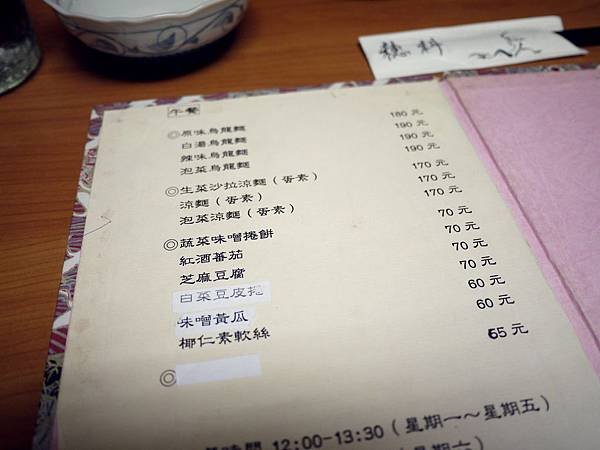 穗科
午餐
◎原味烏龍麵 180 元
白湯烏龍麵 190 元
辣味烏龍麵 190 元
泡菜烏龍麵 190 元
◎生菜沙拉涼麵（蛋素） 170 元
涼麵（蛋素） 170 元
泡菜涼麵（蛋素） 170 元
◎蔬菜味噌捲餅 70 元
紅酒蕃茄 70 元
芝麻豆腐 70 元
白菜豆皮捲 70 元
味噌黃瓜 60 元
椰仁素軟絲 60 元
◎ 65 元
時間 12:00-13:30（星期一～星期五）
（星期六）